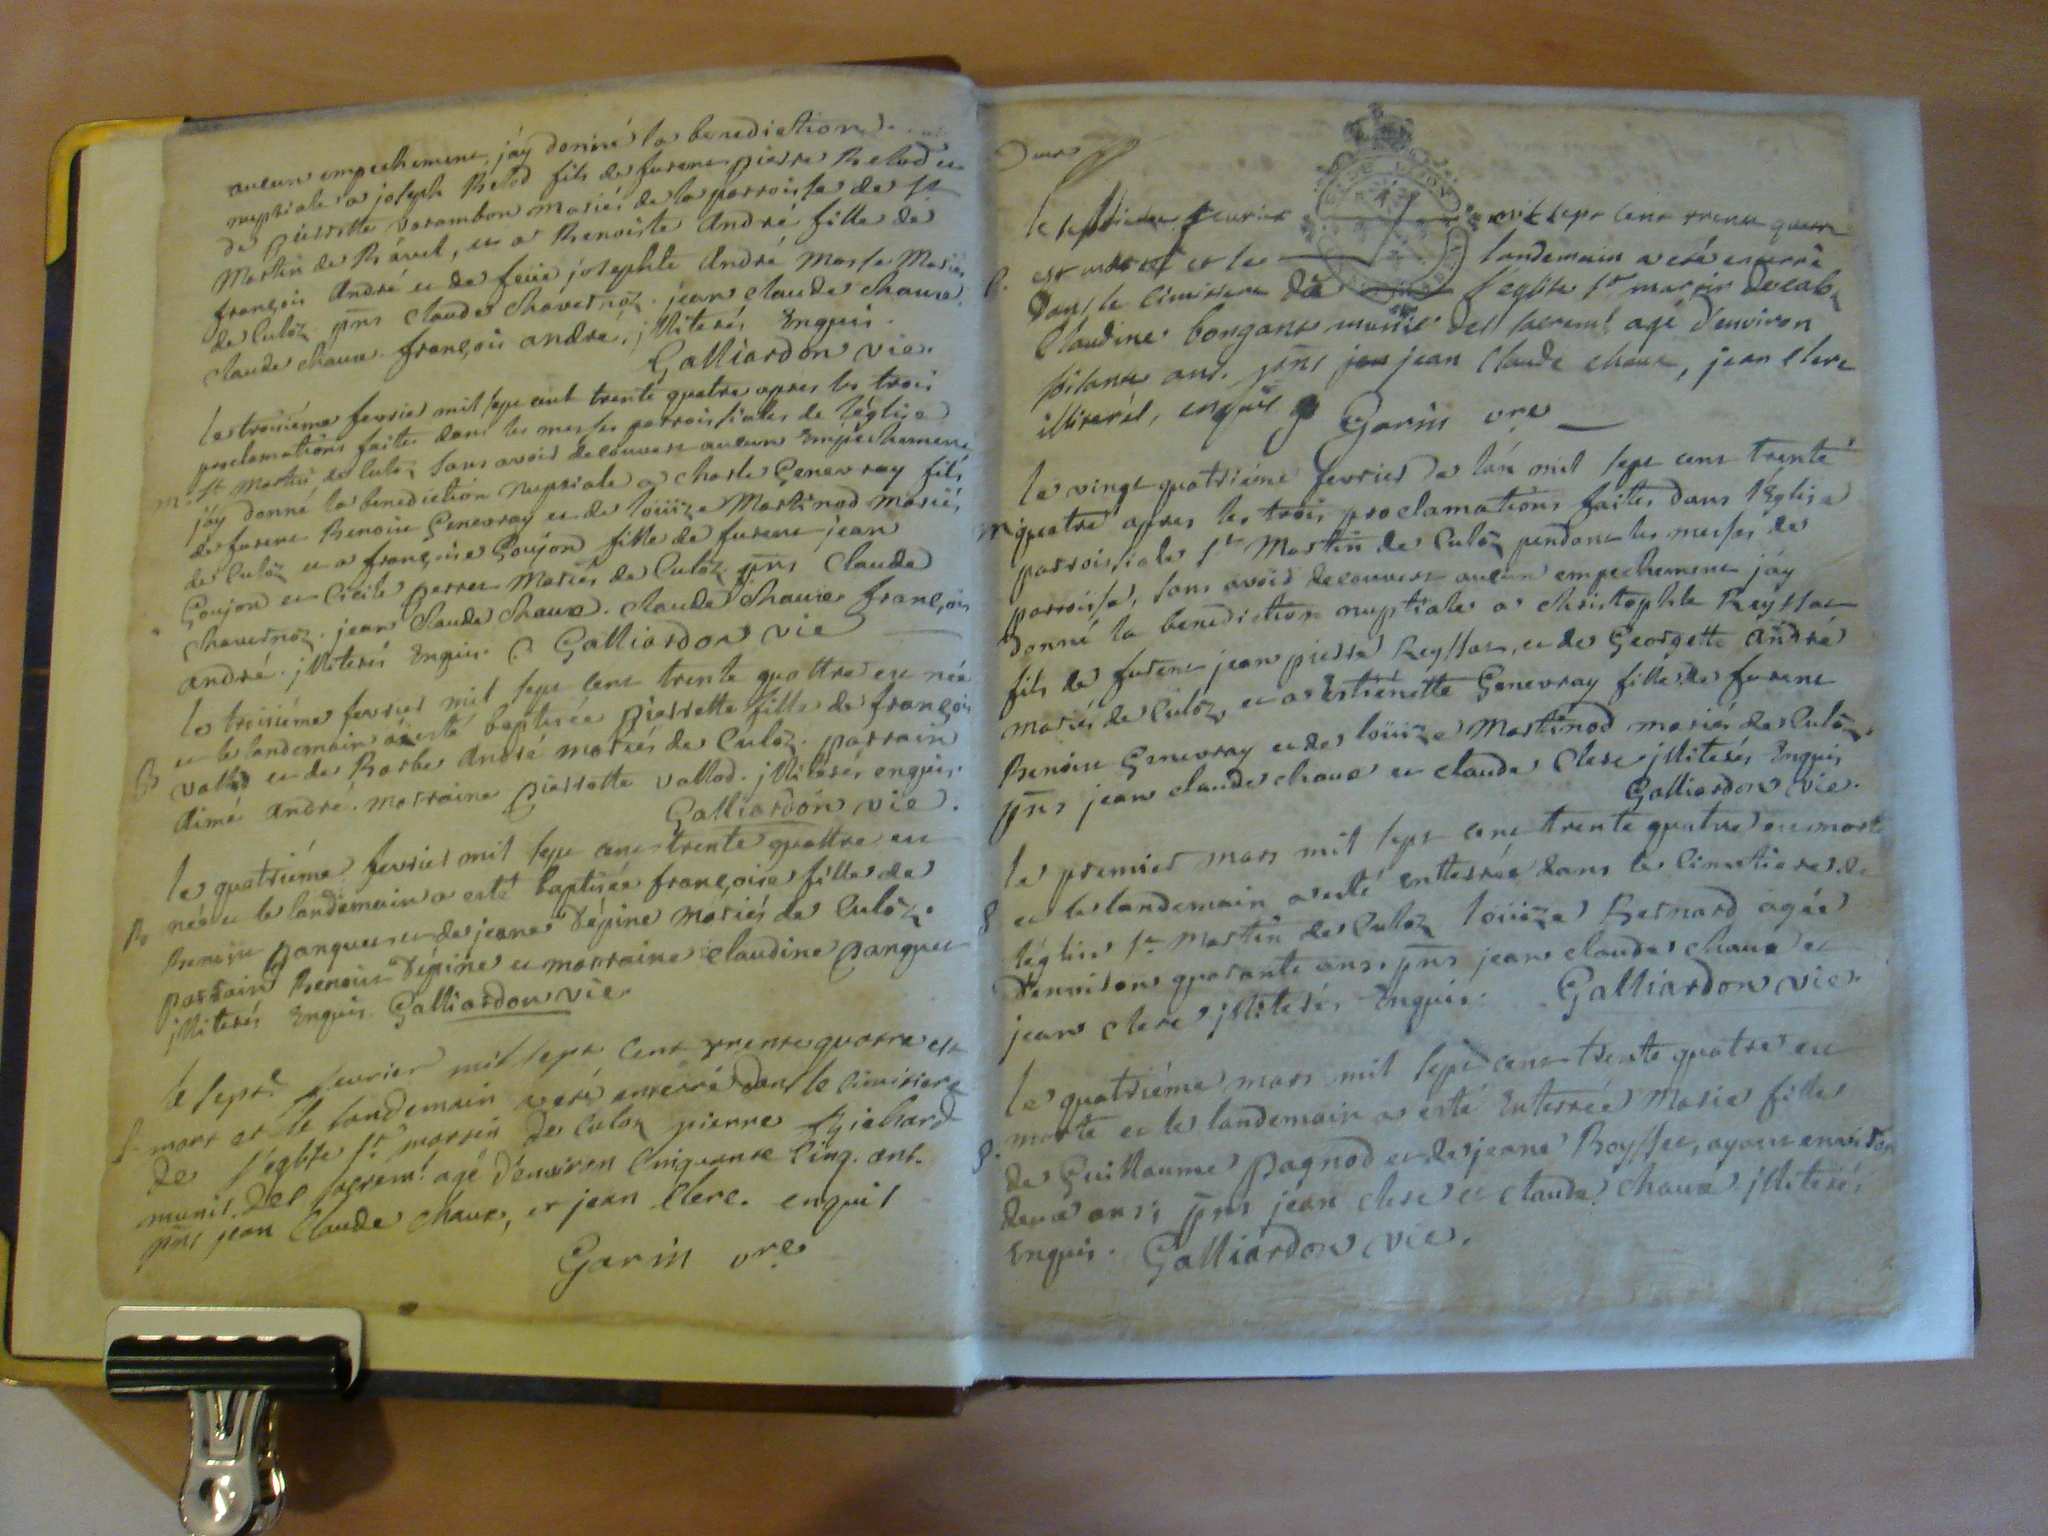 aucun empechement, jáy donné la benediction
nuptiale a joseph Relod fils de furent pierre Relod et
de pierrette Varambon mariés de la parroisse de St
Martin de Rável, et a Benoiste André fille de
françois André et de feüe josephte André Mariés
de Culoz. pñs Claude Chavernoz. jean Claude Chaux.
Claude Chaux françois andré, jlliterés Enquis.
Galliardon vic.
Le troisiéme fevrier mil sept cent trente quatre apres les trois
proclamations faites dans les messes parroissiales de l'église
m. St Martin de Culoz sans avoir decouvert aucun Empechement
jáy donné la benediction Nuptiale a Charle Genevray fils
de furent Benoit Genevray et de loüize Martinod Mariés
de Culoz et a françoise Goujon fille de furent jean
Goujon et Cécile perret Mariés de Culoz pñs Claude
Chavernoz. jean Claude Chaux. Claude Chaux françois
andré. jlliterés Enquis. Galliardon vic
Le troisiéme fevrier mil sept cent trente quattre est née
B et le landemain a esté baptisée pierrette fille de françois
Vallod et de Barbe André mariés de Culoz. parrain
Aimé André. marraine pierrette Vallod. jlliterés enquis.
Galliardon vic.
le quatriéme fevrier mil sept cent trente quattre est
B née et le landemain a esté baptisée françoise fille de
Benoit panguet et de jeane Dépine Mariés de Culoz.
parrain Benoit Dépine et marraine Claudine panguet
jlliterés Enquis. Galliardon vic.
le sept.e fevrier mil sept cent trente quatre est
S. mort et le landemain a eté enterré dans le cimitiere
de l'eglise St martin de Culoz pierre
munis des sacremt. agé d'environ Cinquante Cinq. ans.
pñs jean Claude Chaux, et jean Clerc. enquis
Garin vre
Deux
le fevrier mil sept cent trente quatre
S. est mort et le landemain a eté enterré
dans le Cimitiere de l'eglise St martin de Culoz
Claudine bongane munie des sacremt. agé d'environ
ans. pñs jean Claude Chaux, jean Clerc
illiterés, enquis Garin vre
Le vingt quatriéme fevrier de lán mil sept cent trente
m quatre apres les trois proclamations faites dans l'Eglise
parroissiale St Martin de Culoz pendant les messes de
parroisse, sans avoir decouvert aucun empechement jáy
donné la benediction nuptiale a christophle Reyssac
fils de furent jean pierre Reyssac, et de Georgette André
mariés de Culoz, et a Estiénette Genevray fille de furent
Benoit Genevray et de loüize Martinod mariés de Culoz.
pñs jean claude chaux et claude Clerc jlliterés Enquis
Galliardon vic.
Le premier mars mil sept cent trente quatre est morte
S et le landemain a esté Enterrée dans le Cimetiere de
léglise St Martin de Culloz loüize Bernard agée
d'environ quarante ans. pñs jean claude chaux et
jean Clerc jlliterés Enquis. Galliardon vic.
Le quatriéme mars mil sept cent trente quatre est
morte et le landemain a esté Enterrée Marie fille
S. de Guillaume pagnod et de jeane Royssec, ayant environ
deux ans; pñs jean clerc et claude Chaux jlliterés
Enquis. Galliardon vic.